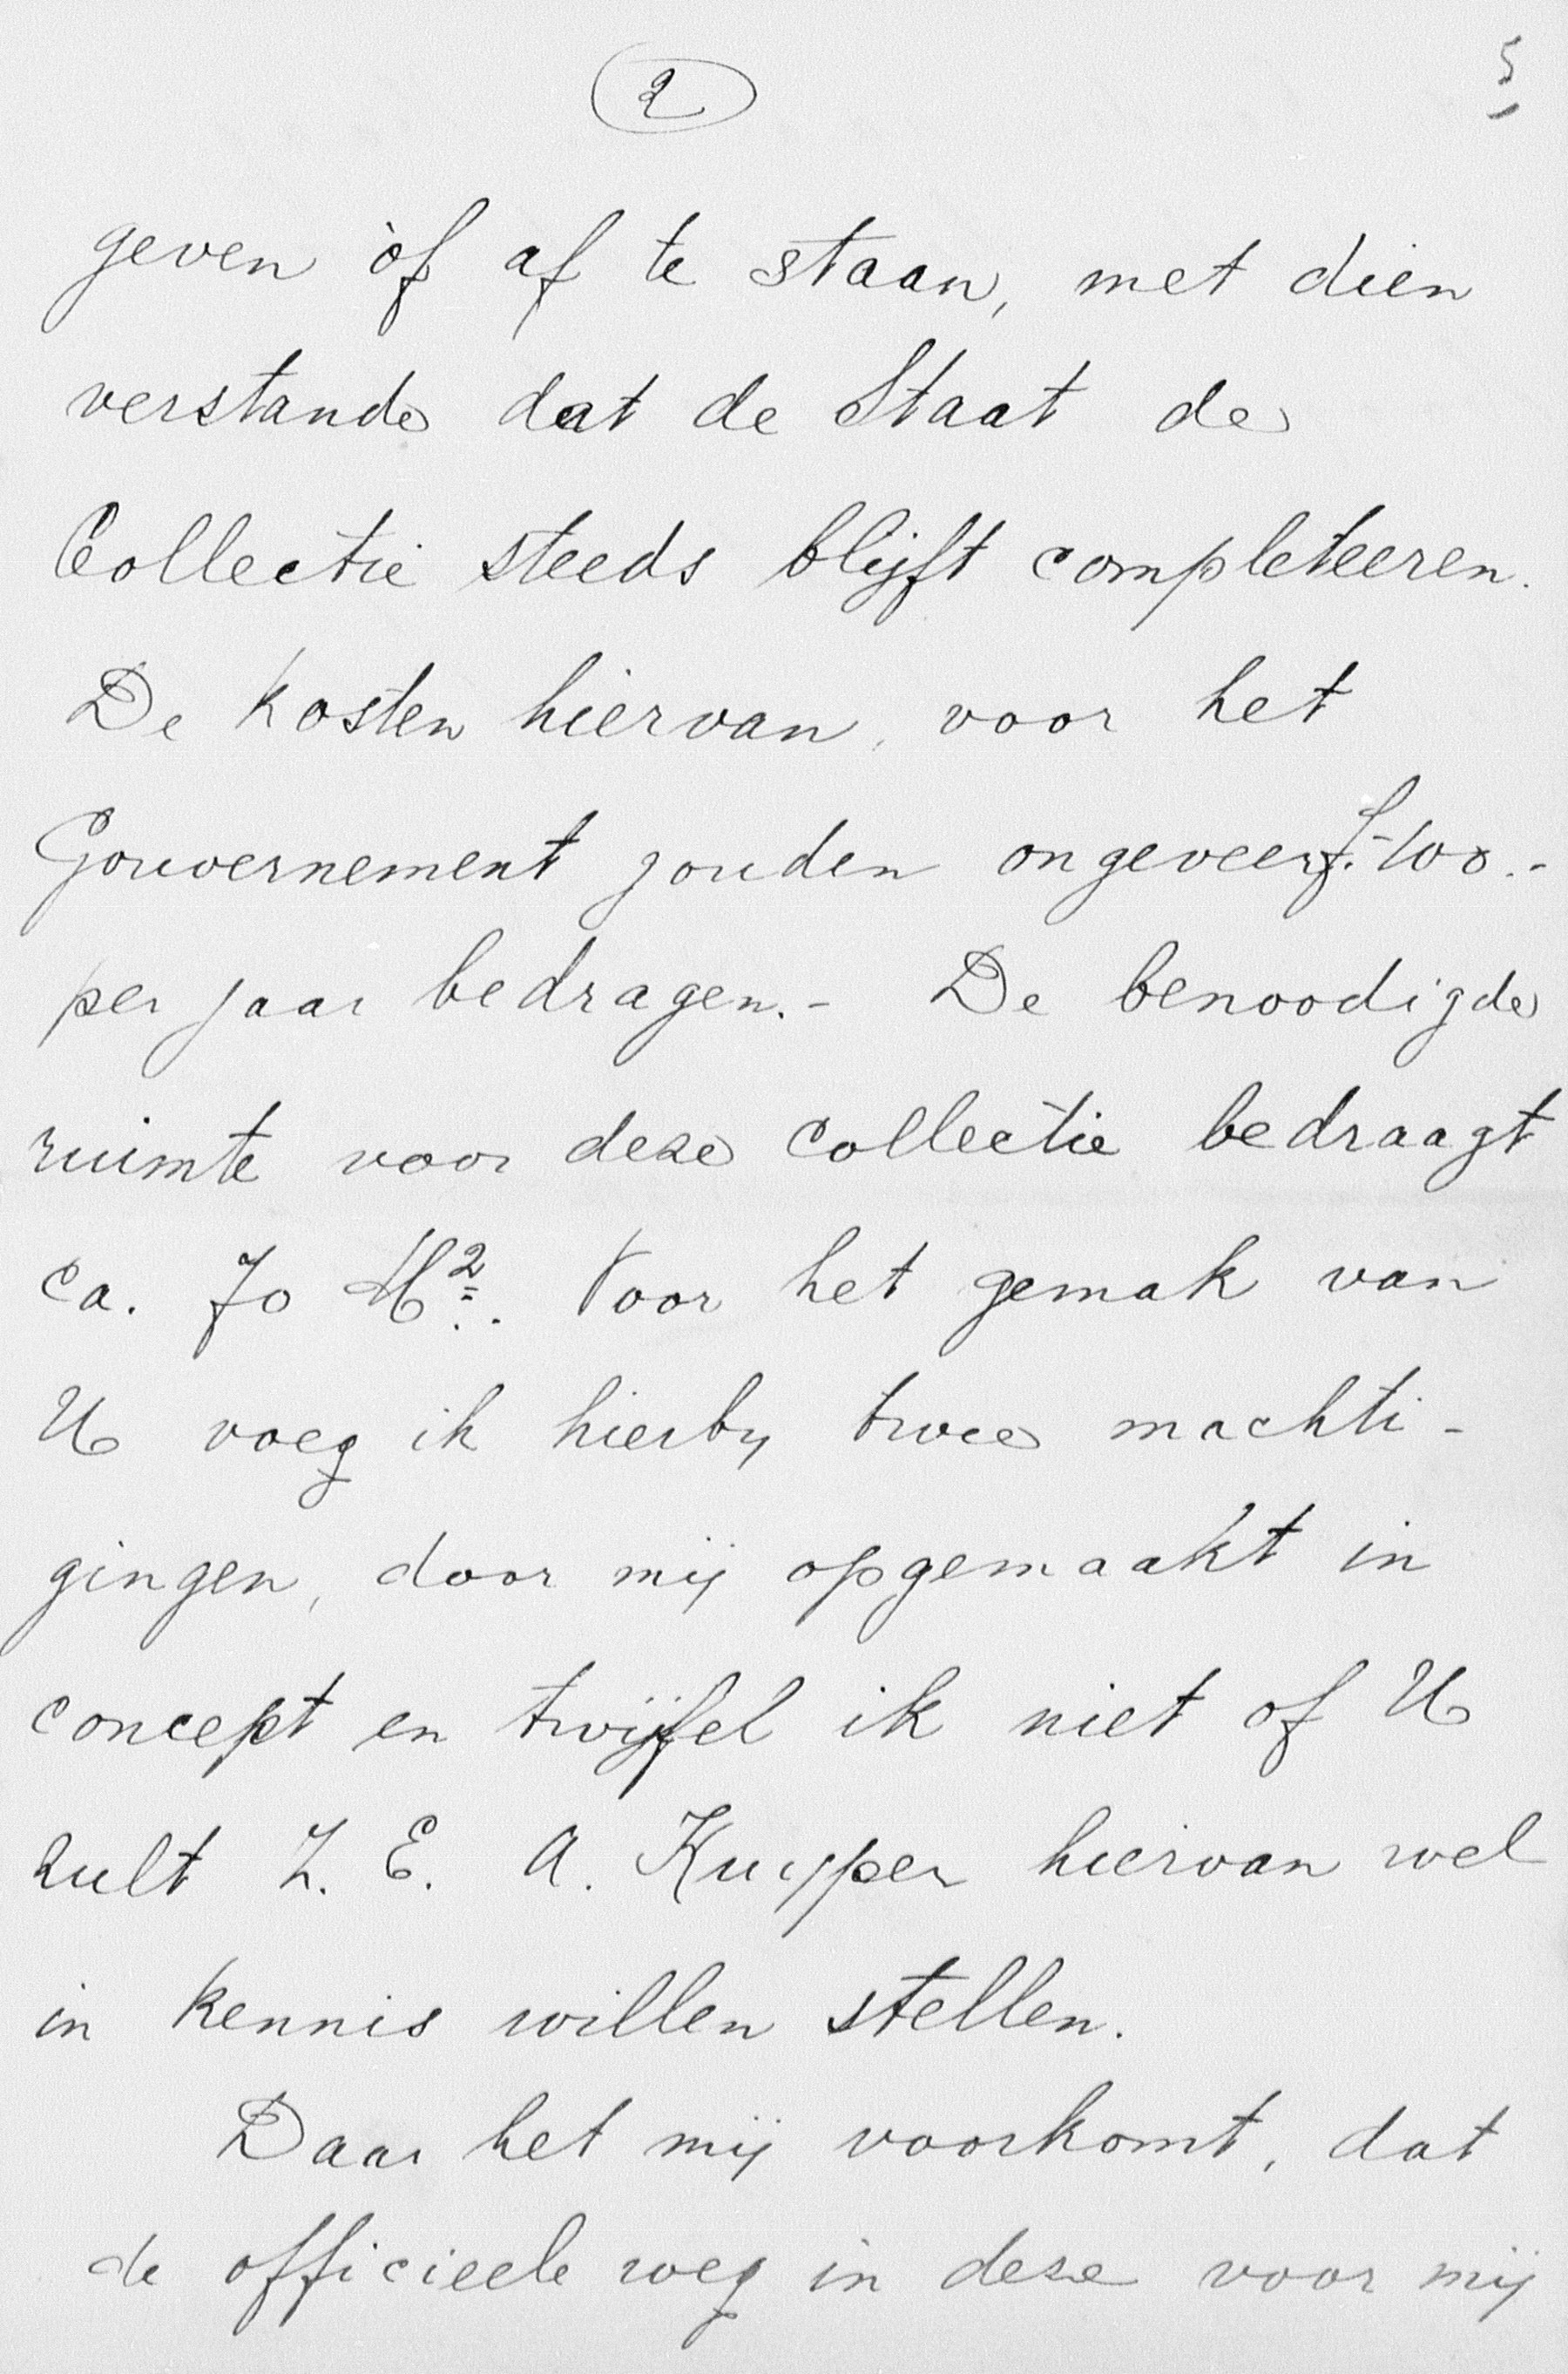 2
5
geven òf af te staan, met dien
verstande dat de Staat de
Collectie steeds blijft completeeren.
De kosten hiervan, voor het
Gouvernement zouden ongeveer f. 100.-
per jaar bedragen.- De benoodigde
ruimte voor deze collectie bedraagt
ca. 70 M². Voor het gemak van
U voeg ik hierby twee machti-
gingen, door mij opgemaakt in
concept en twijfel ik niet of U
zult Z. E. A. Kuyper hiervan wel
in kennis willen stellen.
Daar het mij voorkomt, dat
de officieele weg in deze voor mij